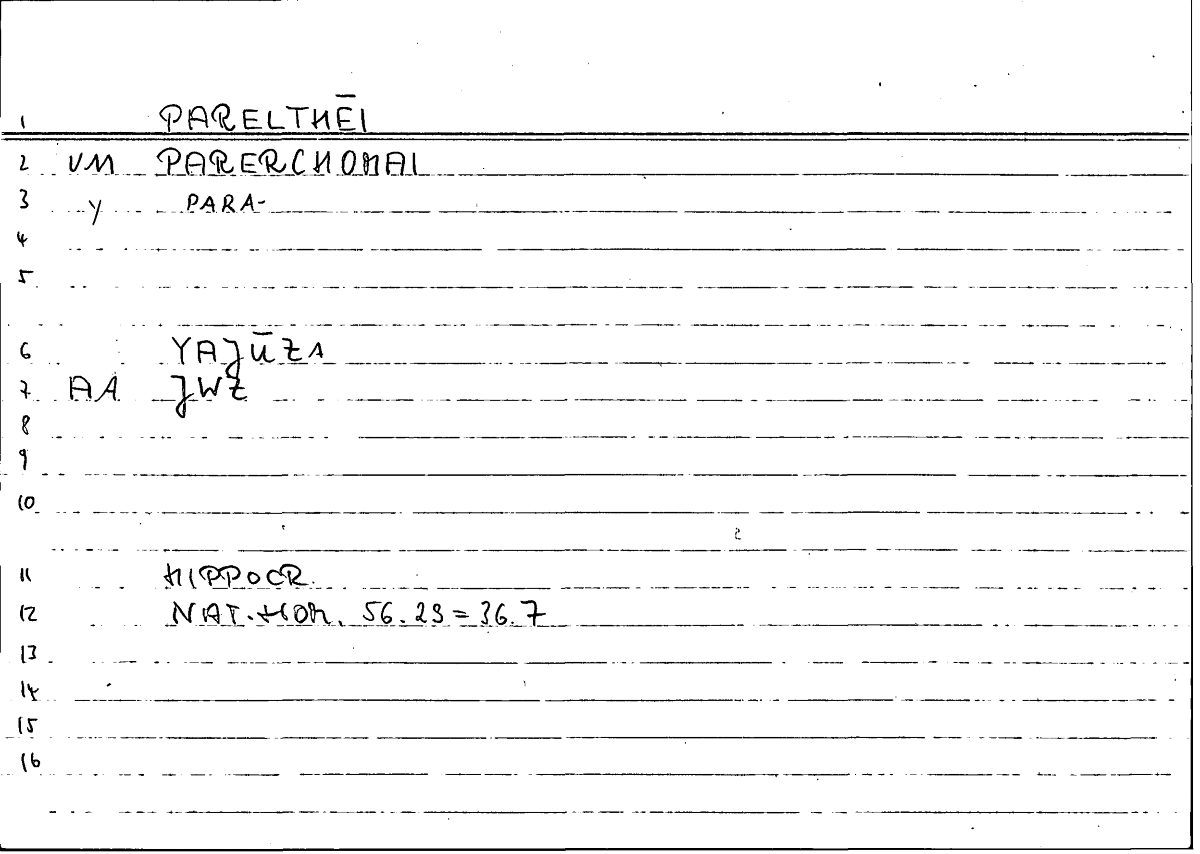 1 PARELTHĒI
2 VM PARERCHOMAI
3 Y PARA-
4
5
6 YAJŪZA
7 AA JWZ
8
9
10
11 HIPPOCR.
12 NAT.HOM. 56.23=36.7
13
14
15
16